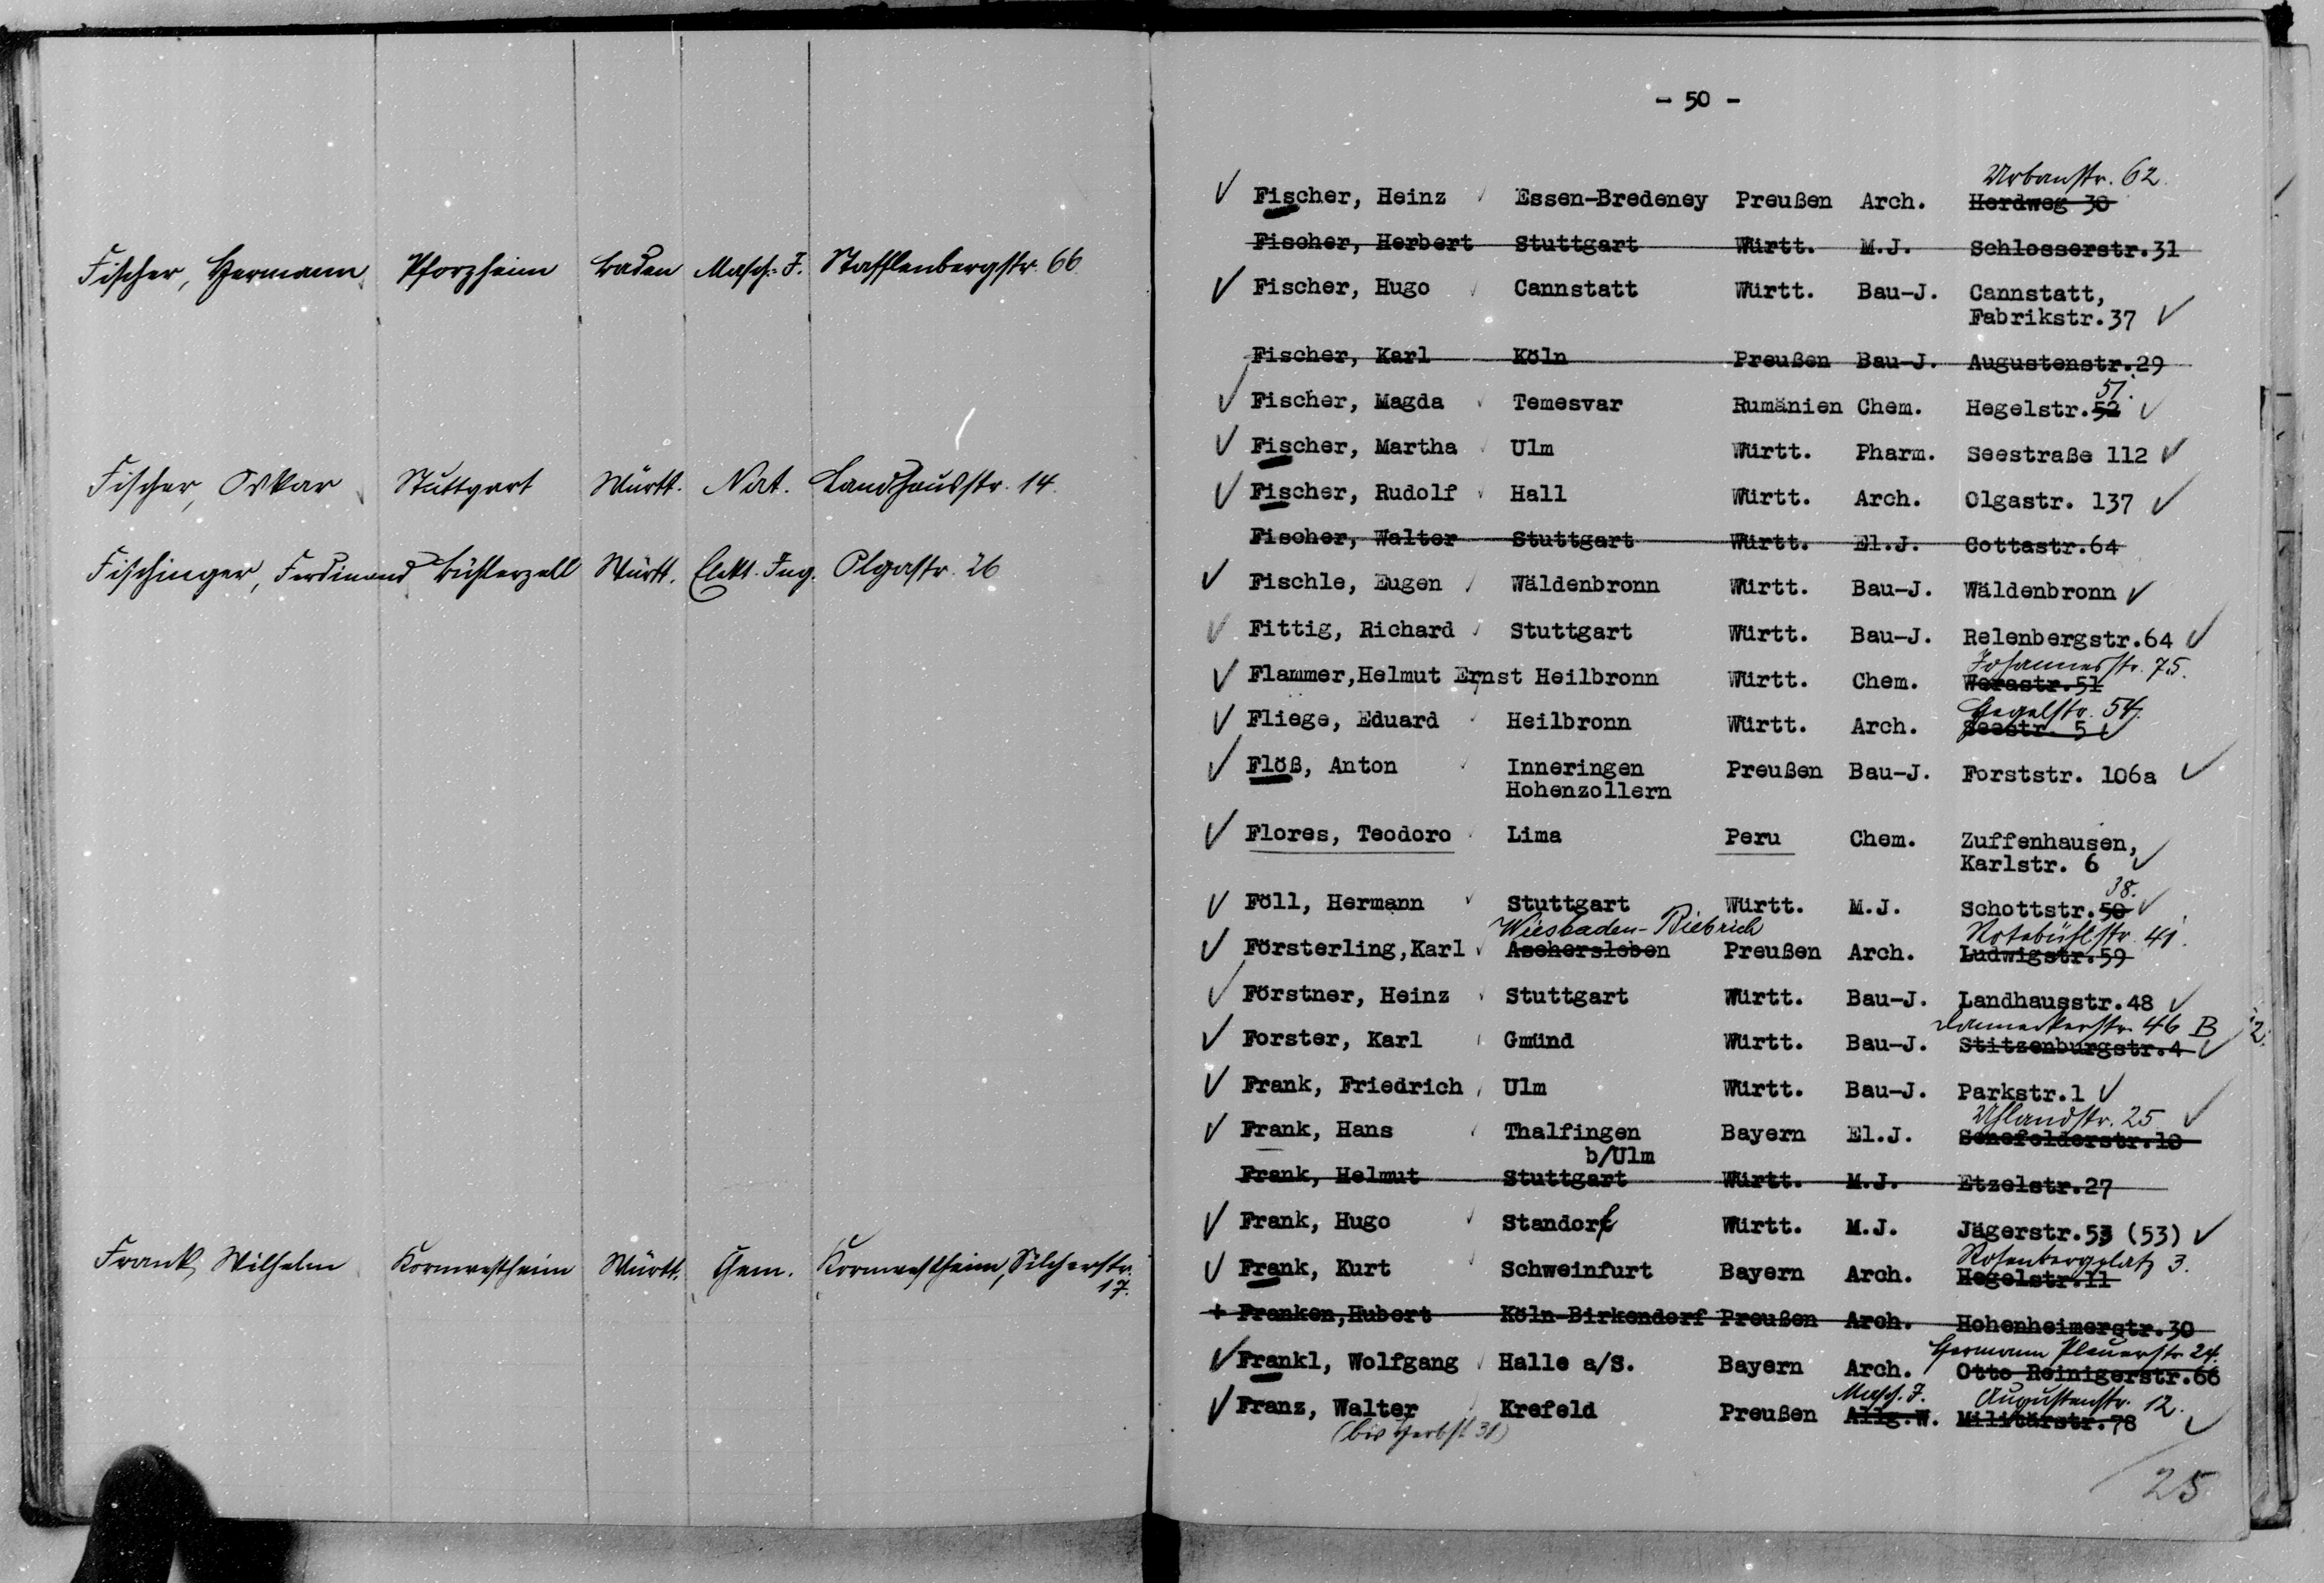 Fischer, Hermann Pforzheim Baden Masch.-J. Stafflenbergstr. 66.
Fischer, Oskar Stuttgart Württ. Nat. Landhausstr. 14.
Fischinger, Ferdinand Bühlerzell Württ. Elekt. Ing. Olgastr. 26
Frank, Wilhelm Kornwestheim Württ. Chem. Kornwestheim, Silcherstr.
17.
- 50 -
Urbanstr. 62.
✓ Fischer, Heinz ✓ Essen-Bredeney Preußen Arch. Herdweg 30
Fischer, Herbert Stuttgart Württ. M.J. Schlosserstr.31
✓ Fischer, Hugo ✓ Cannstatt Württ. Bau-J. Cannstatt,
Fabrikstr.37 ✓
Fischer, Karl Köln Preußen Bau-J. Augustenstr.29
51.
✓ Fischer, Magda ✓ Temesvar Rumänien Chem. Hegelstr.52 ✓
✓ Fischer, Martha ✓ Ulm Württ. Pharm. Seestraße 112 ✓
✓ Fischer, Rudolf ✓ Hall Württ. Arch. Olgastr. 137 ✓
Fischer, Walter Stuttgart Württ. El.J. Cottastr.64
✓ Fischle, Eugen ✓ Wäldenbronn Württ. Bau-J. Wäldenbronn ✓
✓ Fittig, Richard ✓ Stuttgart Württ. Bau-J. Relenbergstr.64 ✓
Johannesstr. 75.
✓ Flammer,Helmut Ernst Heilbronn Württ. Chem. Werastr.51
Hegelstr. 54.
✓ Fliege, Eduard ✓ Heilbronn Württ. Arch. Seestr. 5 ✓
✓ Flöß, Anton ✓ Inneringen Preußen Bau-J. Forststr. 106a ✓
Hohenzollern
✓ Flores, Teodoro ✓ Lima Peru Chem. Zuffenhausen,
Karlstr. 6 ✓
38.
✓ Föll, Hermann ✓ Stuttgart Württ. M.J. Schottstr.50 ✓
Wiesbaden-Biebrich Rotebühlstr. 41.
✓ Försterling,Karl ✓ Aschersleben Preußen Arch. Ludwigstr.59
✓ Förstner, Heinz ✓ Stuttgart Württ. Bau-J. Landhausstr.48 ✓
Danneckerstr. 46 B
✓ Forster, Karl ✓ Gmünd Württ. Bau-J. Stitzenburgstr.4 ✓
✓ Frank, Friedrich ✓ Ulm Württ. Bau-J. Parkstr.1 ✓
Uhlandstr. 25 ✓
✓ Frank, Hans ✓ Thalfingen Bayern El.J. Senefelderstr.10
b/Ulm
Frank, Helmut Stuttgart Württ. M.J. Etzelstr.27
✓ Frank, Hugo ✓ Standorf Württ. M.J. Jägerstr.53 (53) ✓
Rosenbergplatz 3.
✓ Frank, Kurt ✓ Schweinfurt Bayern Arch. Hegelstr.11
+ Franken,Hubert Köln-Birkendorf Preußen Arch. Hohenheimerstr.30
Hermann Pleuerstr. 24.
✓ Frankl, Wolfgang ✓ Halle a/S. Bayern Arch. Otto Reinigerstr.66
Masch. J. Augustenstr. 12.
✓ Franz, Walter Krefeld Preußen Allg.W. Militärstr.78 ✓
(bis Herbst 31)
25